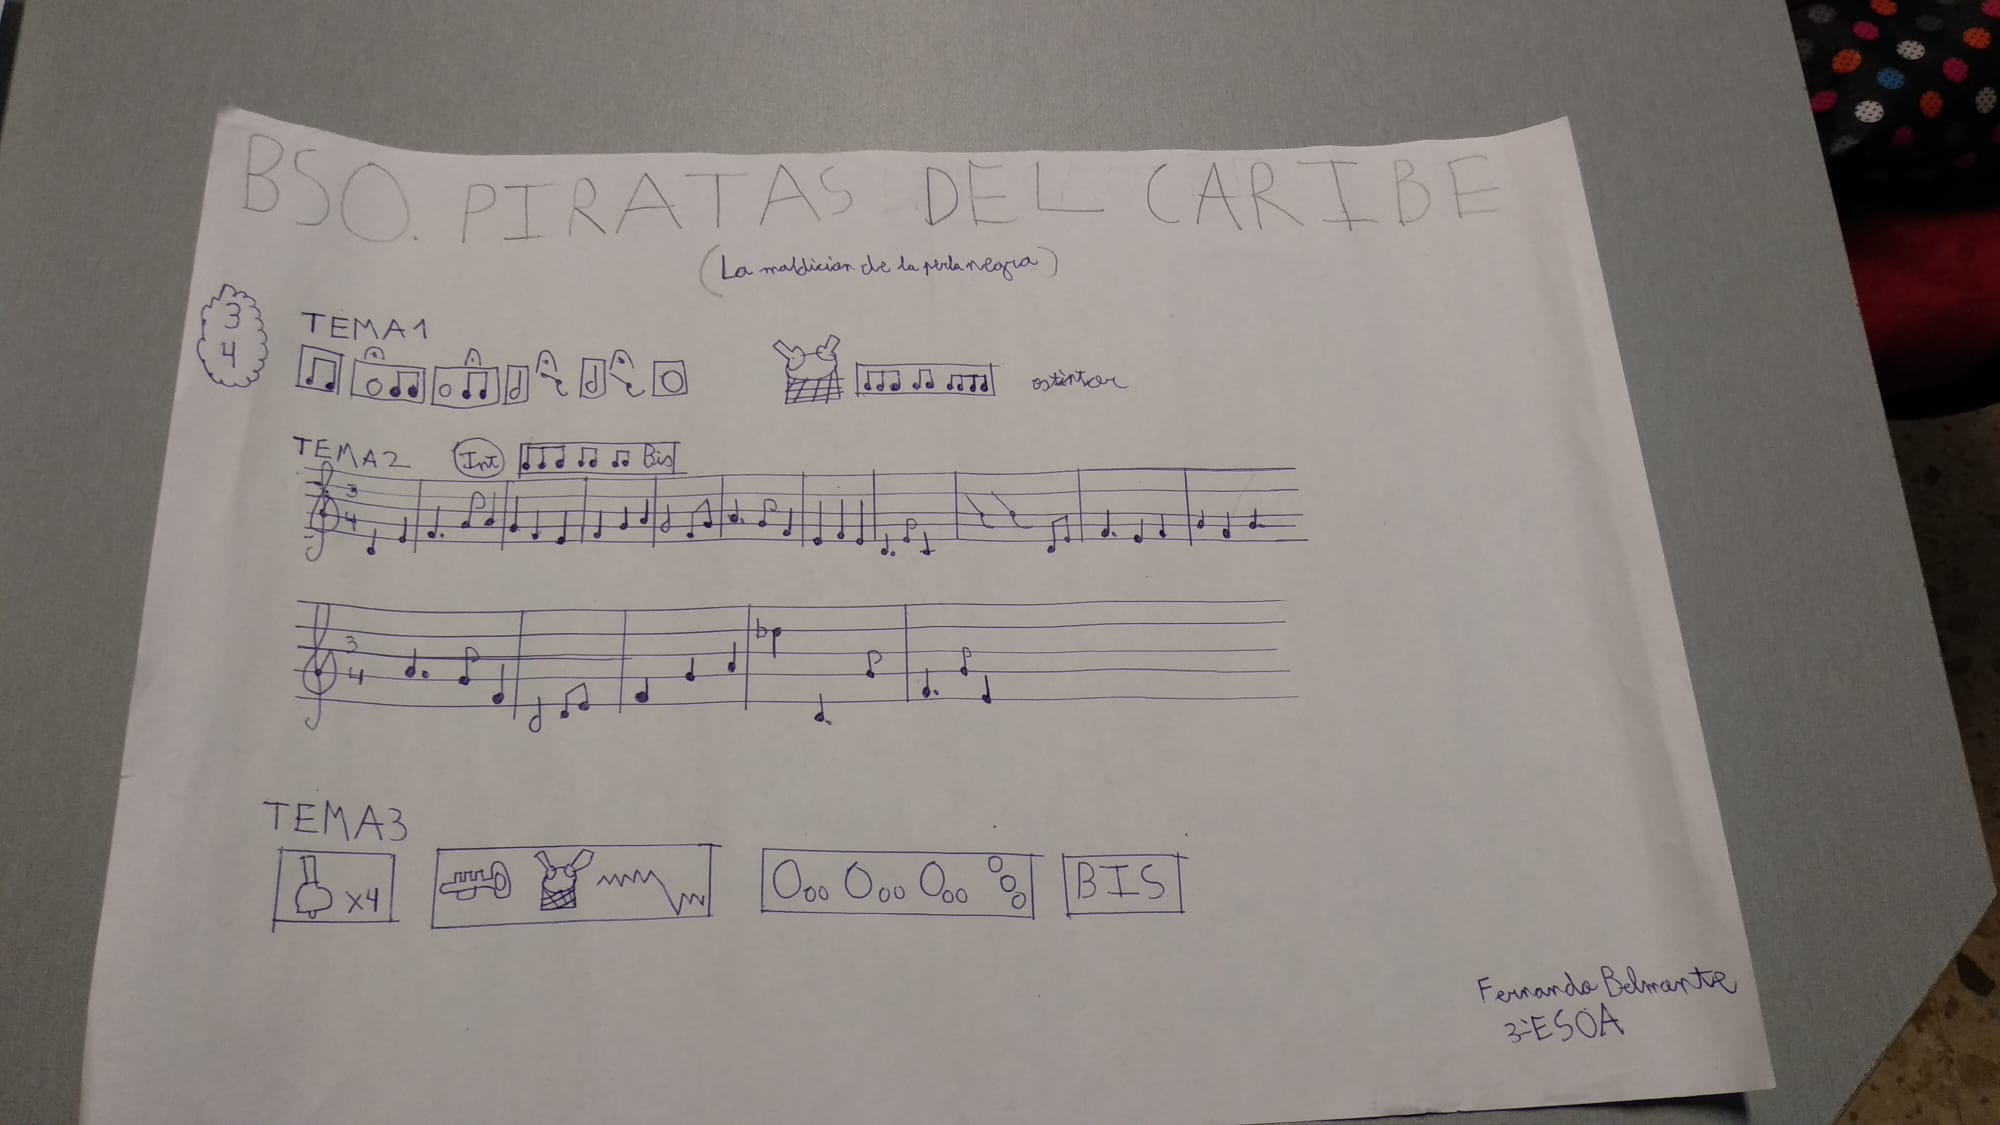 BSO. PIRATAS DEL CARIBE
(La maldician de la perla negra)
3
4
TEMA1
TEMA2 Int Bis
3
4
3
4
TEMA3
x4
BIS
Fernando Belmante
3ºESOA